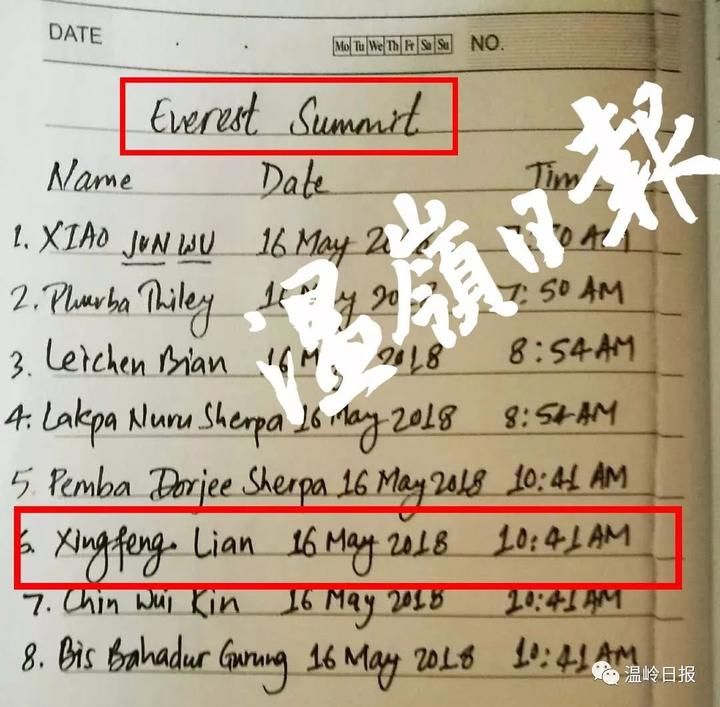 DATE Mo Tu We Th Fr Sa Su NO.
Everest Summit
Name Date Time
1. XIAO JUN WU 16 May 2018 7:50 AM
2. Phurba Thiley 16 May 2018 7:50 AM
3. Leichen Bian 16 May 2018 8:54 AM
4. Lakpa Nuru Sherpa 16 May 2018 8:54 AM
5 Pemba Dorjee Sherpa 16 May 2018 10:41 AM
6. Xingfeng Lian 16 May 2018 10:41 AM
7. Chin Wui Kin 16 May 2018 10:41 AM
8. Bis Bahadur Gurung 16 May 2018 10:41 AM
溫嶺日報
温岭日报